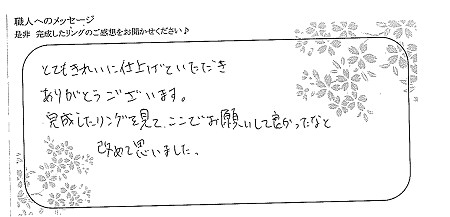 職人へのメッセージ
是非 完成したリングのご感想をお聞かせください♪
とてもきれいに仕上げていただき
ありがとうございます。
完成したリングを見て、ここでお願いして良かったなと
改めて思いました。